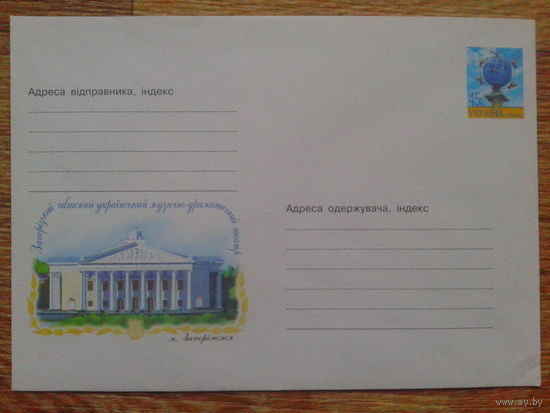 45
УКРАЇНА
Адреса відправника, індекс
Запорізький обласний український музично-драматичний театр
м. Запоріжжя
Адреса одержувача, індекс
www.ay.by